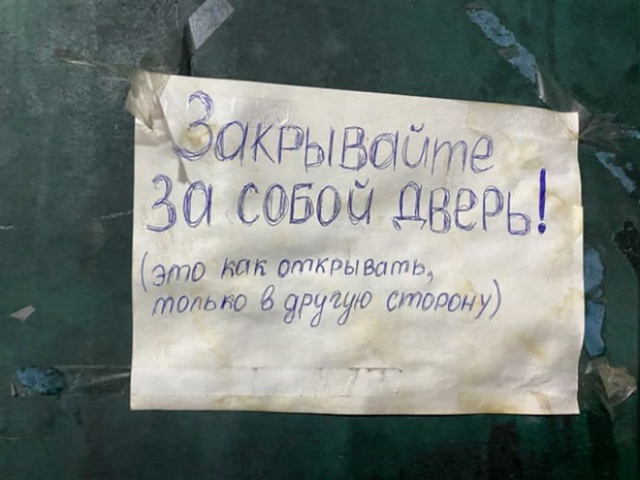 Закрывайте
за собой дверь!
(это как открывать,
только в другую сторону)